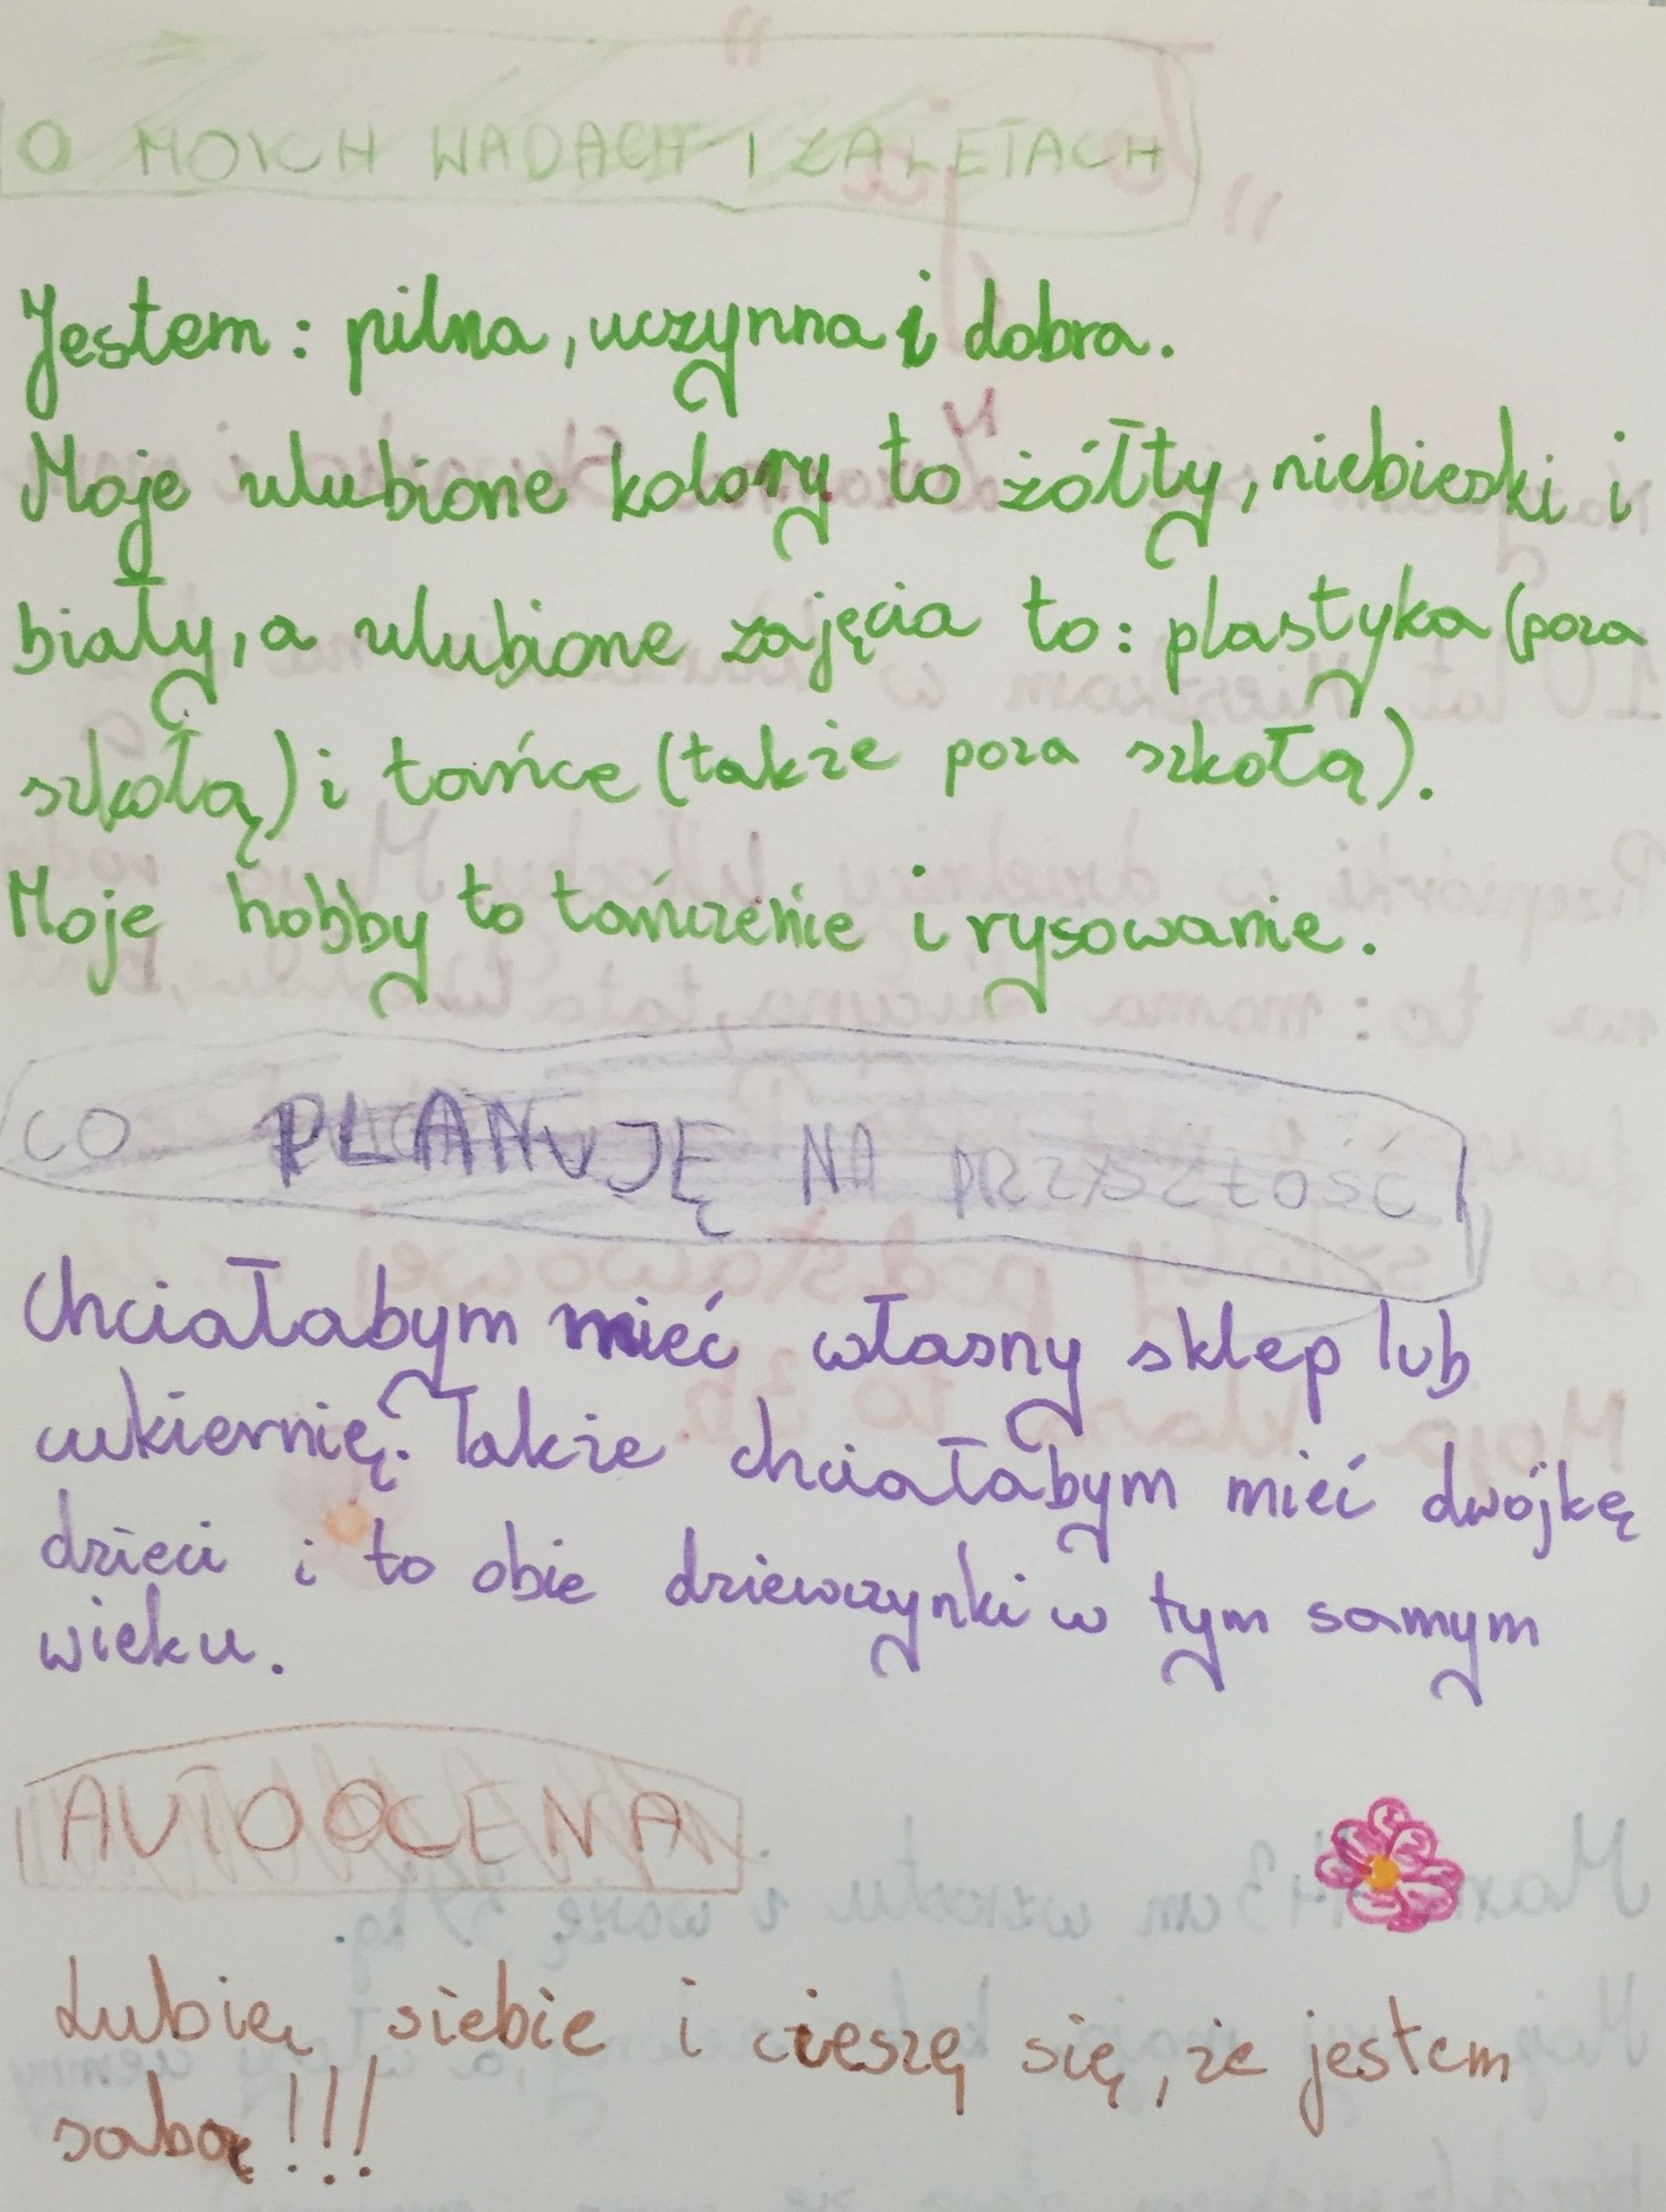 O MOICH WADACH I ZALETACH
Jestem: pilna, uczynna i dobra.
Moje ulubione kolory to żółty, niebieski i
biały, a ulubione zajęcia to: plastyka (poza
szkołą) i tańce (także poza szkołą).
Moje hobby to tańczenie i rysowanie.
CO PLANUJĘ NA PRZYSZŁOŚĆ
Chciałabym mieć własny sklep lub
cukiernię. Także chciałabym mieć dwójkę
dzieci i to obie dziewczynki w tym samym
wieku.
AUTOOCENA
Lubię siebie i cieszę się, że jestem
sobą!!!